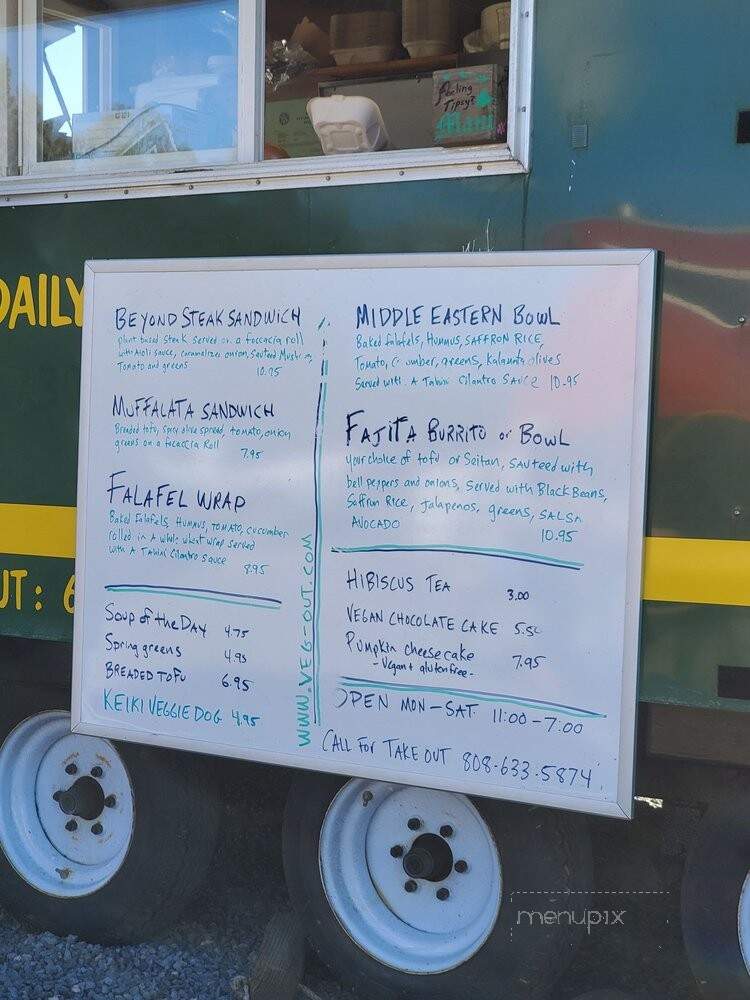 Feeling
Tipsy?
DAILY
UT: 6
BEYOND STEAK SANDWICH
plant based steak served on a foccaccia roll
with Aioli sauce, caramalized onion, sauteed
Tomato and greens
10.95
MUFFALATA SANDWICH
Breaded tofu, spicy olive spread, tomato, onion
greens on a focaccia Roll
7.95
FALAFEL WRAP
Baked falafels, Hummus, TOMATO, cucumber
rolled in A whole wheat wrap served
with A Tahini Cilantro sauce
8.95
Soup of the Day 4.75
Spring greens 4.95
BREADED TOFU 6.95
KEIKI VEGGIE DOG 4.95
WWW.VEG-OUT.COM
MIDDLE EASTERN BOWL
Baked falafels, HUMMUS, SAFFRON RICE,
Tomato, C umber, greens, Kalamata olives
Served with A Tahini Cilantro SAUCE 10.95
FAJITA BURRITO or BOWL
your choice of tofu or Seitan, SAUTEED with
bell peppers and onions, served with Black Beans,
Saffron Rice, Jalapenos, greens, SALSA
AVOCADO
10.95
HIBISCUS TEA 3.00
VEGAN CHOCOLATE CAKE 5.50
Pumpkin cheesecake 7.95
- Vegan + gluten free -
OPEN MON-SAT 11:00-7:00
CALL FOR TAKE OUT 808-633-5874
menupix